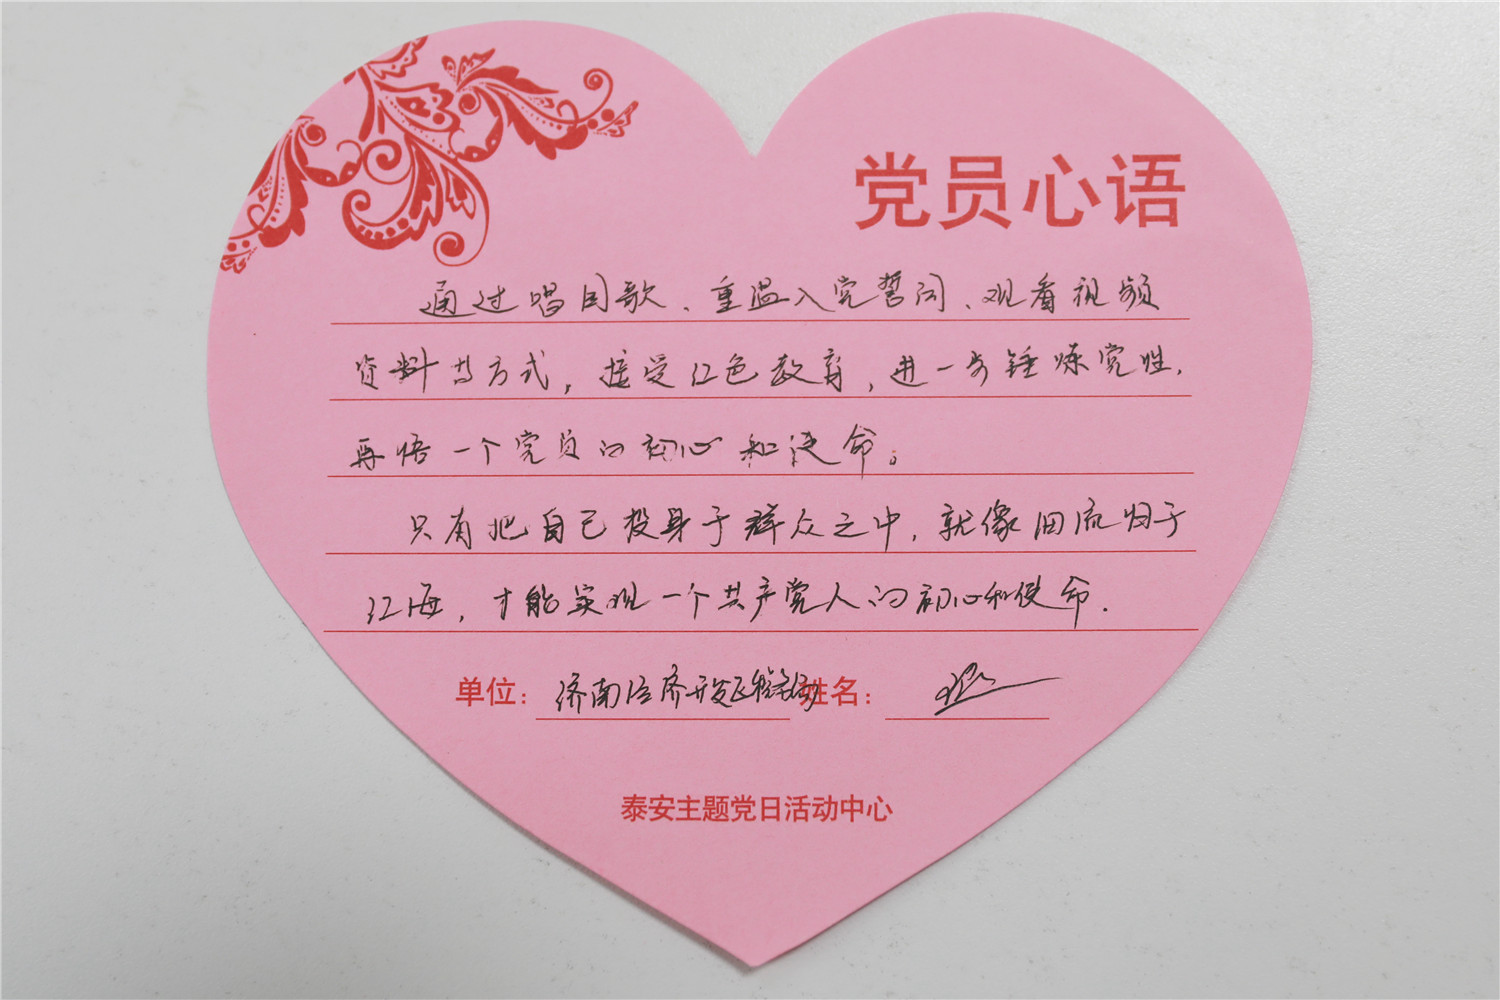 党员心语
通过唱国歌、重温入党誓词、观看视频
资料等方式，接受红色教育，进一步锤炼党性，
再悟一个党员的初心和使命。
只有把自己投身于群众之中，就像涓流归于
江海，才能实现一个共产党人的初心和使命．
单位：济南经济开发区税务局 姓名：
泰安主题党日活动中心